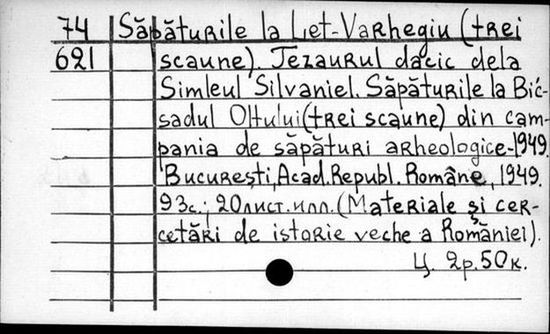 74 Săpăturile la Let-Varhegiu (trei
621 scaune). Tezaurul dacic dela
Simleul Silvaniei. Săpăturile la Bic-
sadul Oltului (trei scaune) din cam-
pania de săpături arheologice-1949.
București, Acad. Republ. Române, 1949.
93с.; 20лист. илл. (Materiale și cer-
cetări de istorie veche a României).
Ц. 2р.50к.